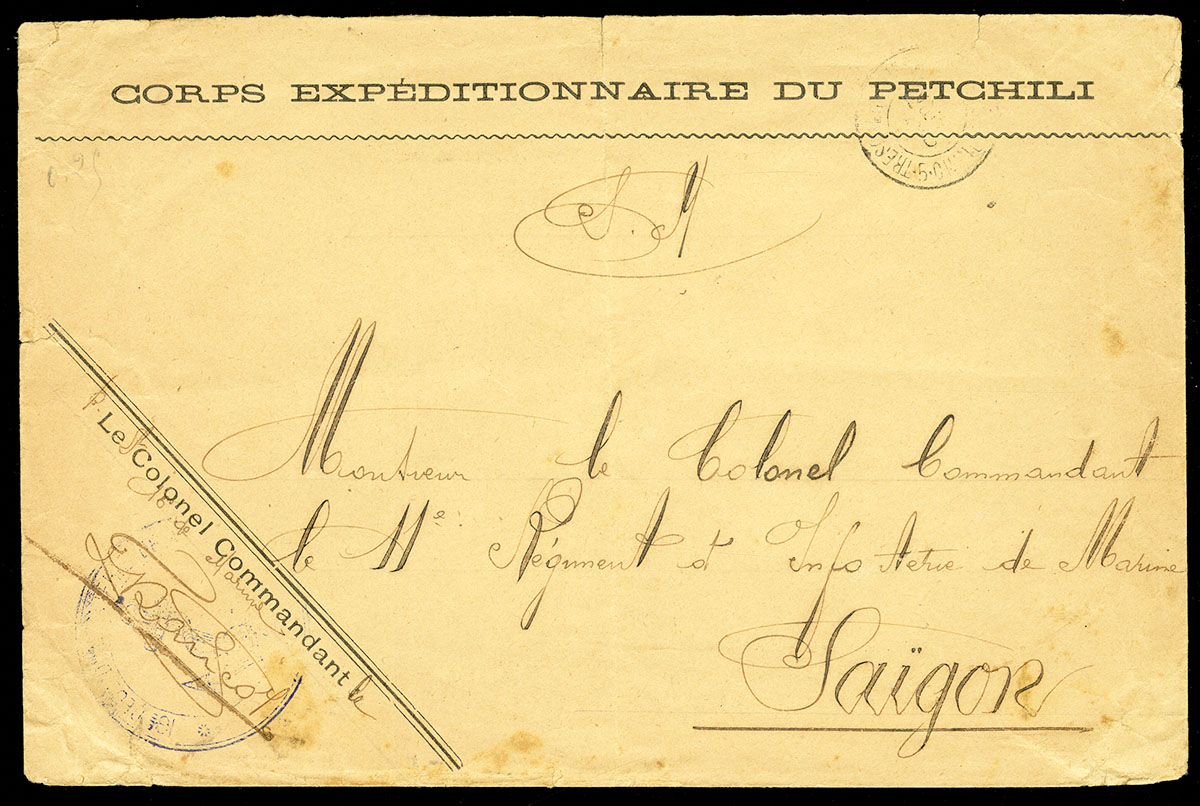 CORPS EXPÉDITIONNAIRE DU PETCHILI
0.25
S. M
Monsieur le Colonel Commandant
le 11e Régiment d'Infanterie de Marine
Saïgon
Le Colonel Commandant le
de Marine